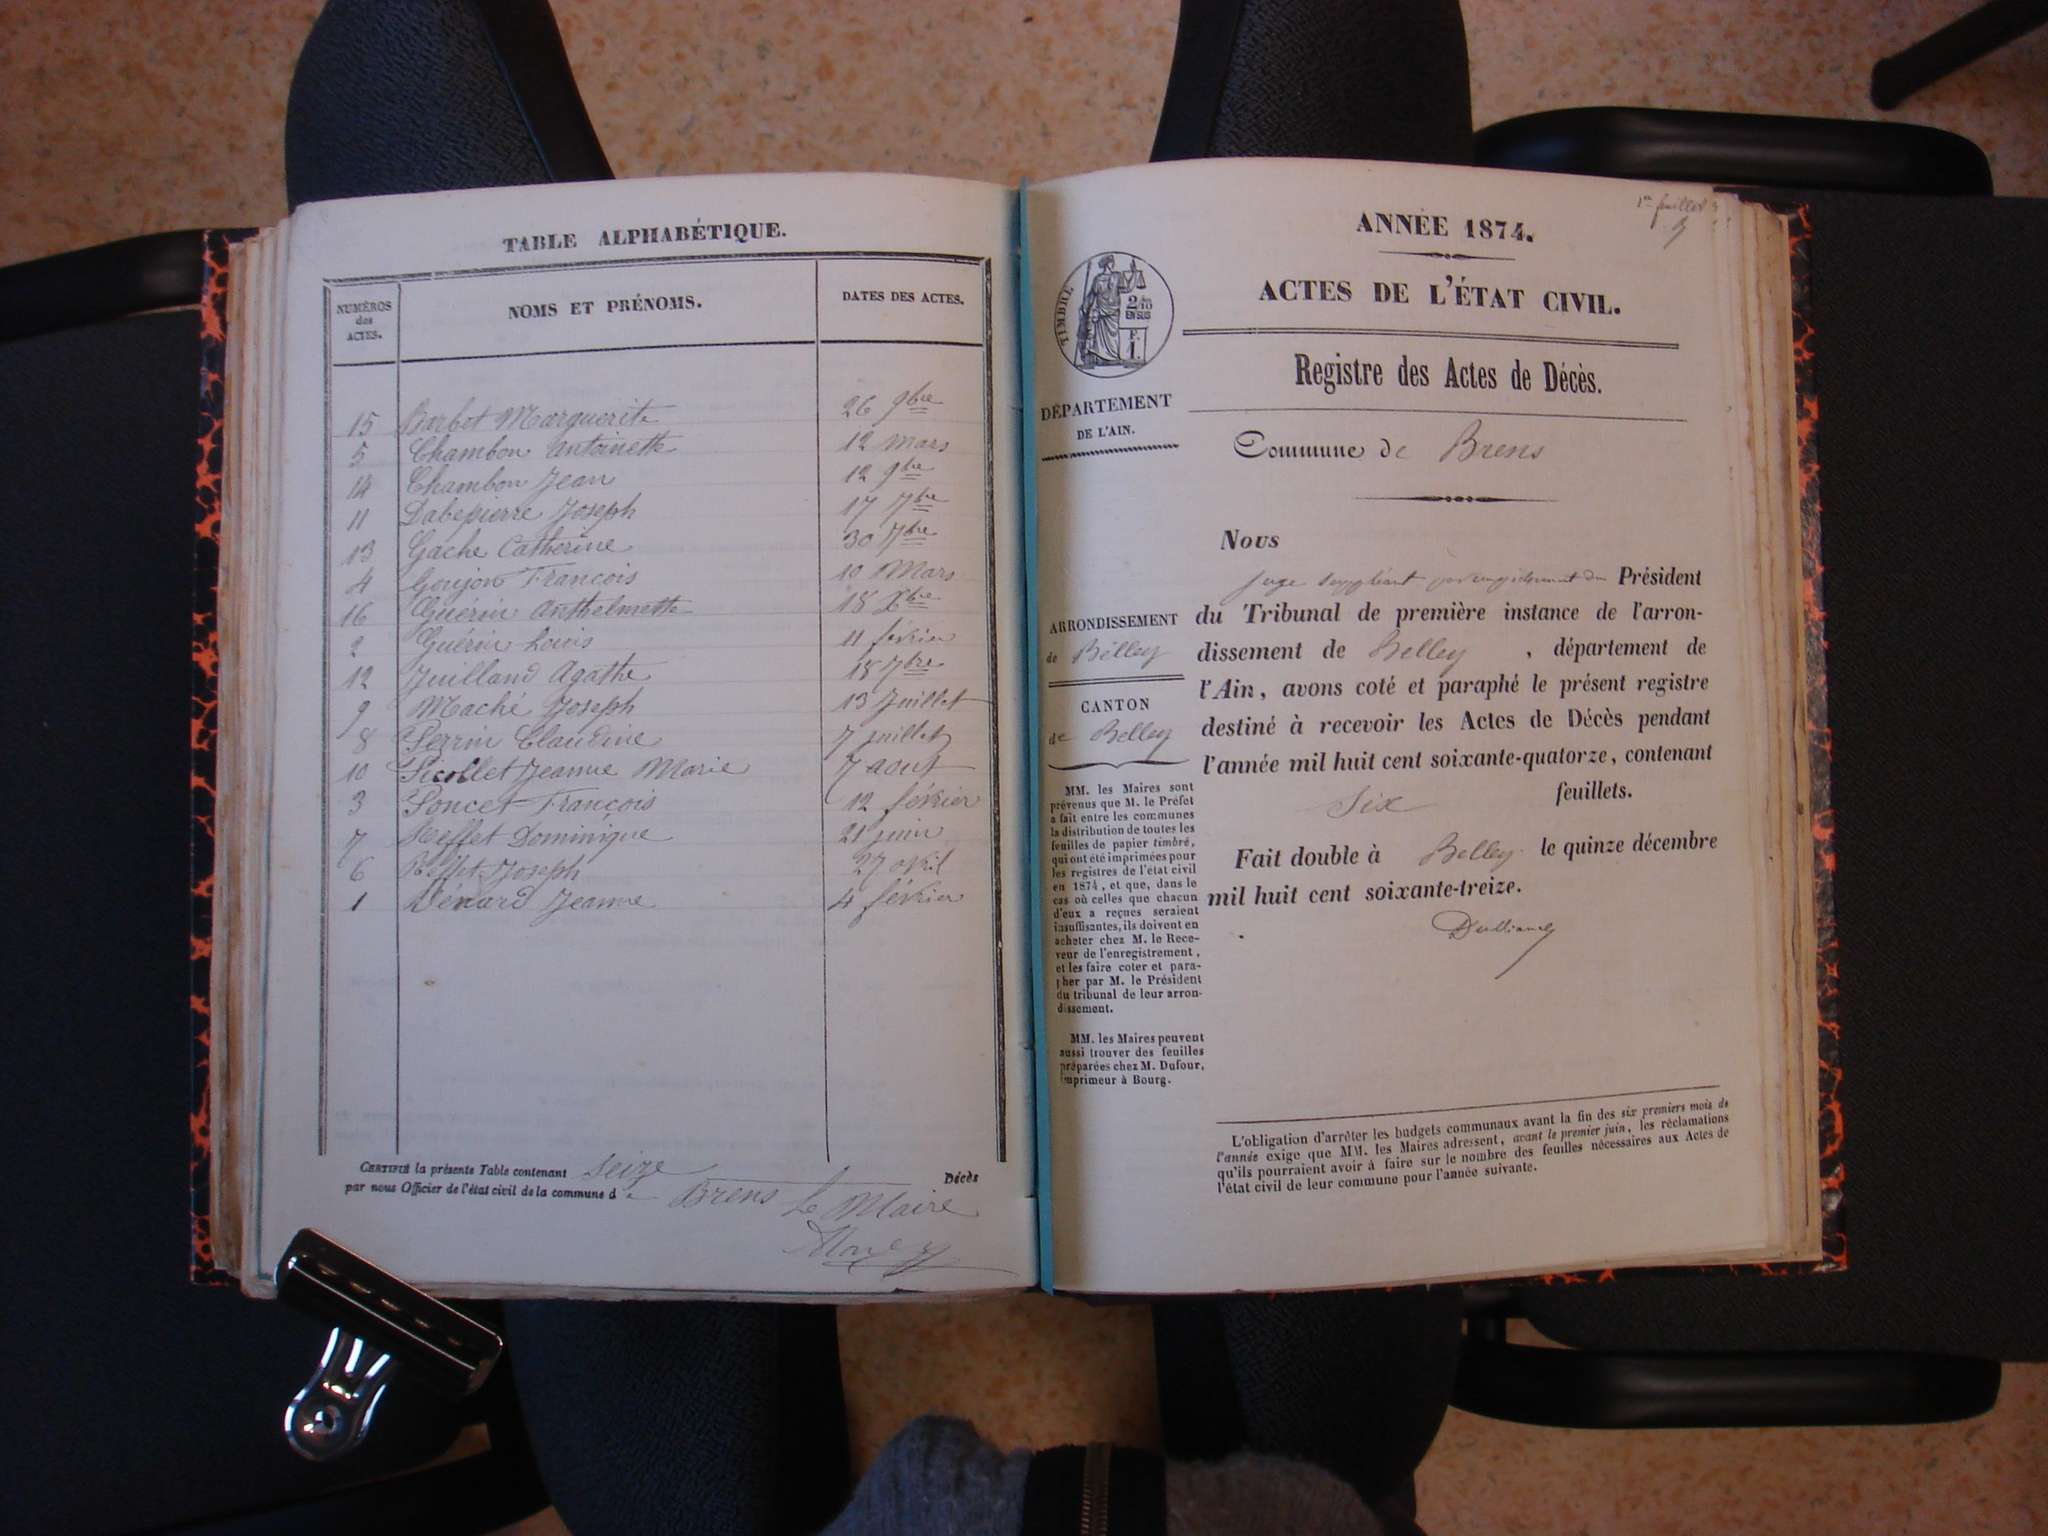 TABLE ALPHABÉTIQUE.
NUMÉROS des ACTES.
NOMS ET PRÉNOMS.
DATES DES ACTES.
15 Barbot Marguerite 26 9bre
5 Chambon Antoinette 12 mars
14 Chambon Jean 12 9bre
11 Dabepierre Joseph 17 7bre
13 Gache Catherine 30 7bre
4 Goujon François 10 Mars
16 Guérin Anthelmette 18 Xbre
2 Guérin Louis 11 février
12 Juilland Agathe 18 7bre
9 Maché Joseph 13 Juillet
8 Perrin Claudine 7 juillet
10 Picollet Jeanne Marie 7 aout
3 Poncet François 12 février
7 Reffet Dominique 21 juin
6 Reffet Joseph 27 avril
1 Vénard Jeanne 4 février
CERTIFIÉ la présente Table contenant seize Décès
par nous Officier de l'état civil de la commune de Brens Le Maire
1er feuillet
ANNÉE 1874.
ACTES DE L'ÉTAT CIVIL.
TIMBRE
2/10
EN SUS
F.
1.
Registre des Actes de Décès.
DÉPARTEMENT
DE L'AIN.
Commune de Brens
ARRONDISSEMENT
de Belley
CANTON
de Belley
MM. les Maires sont
prévenus que M. le Préfet
a fait entre les communes
la distribution de toutes les
feuilles de papier timbré,
qui ont été imprimées pour
les registres de l'état civil
en 1874, et que, dans le
cas où celles que chacun
d'eux a reçues seraient
insuffisantes, ils doivent en
acheter chez M. le Rece-
veur de l'enregistrement,
et les faire coter et para-
pher par M. le Président
du tribunal de leur arron-
dissement.
MM. les Maires peuvent
aussi trouver des feuilles
préparées chez M. Dufour,
imprimeur à Bourg.
Nous
juge suppléant Président
du Tribunal de première instance de l'arron-
dissement de Belley , département de
l'Ain, avons coté et paraphé le présent registre
destiné à recevoir les Actes de Décès pendant
l'année mil huit cent soixante-quatorze, contenant
Six feuillets.
Fait double à Belley le quinze décembre
mil huit cent soixante-treize.
L'obligation d'arrêter les budgets communaux avant la fin des six premiers mois de
l'année exige que MM. les Maires adressent, avant le premier juin, les réclamations
qu'ils pourraient avoir à faire sur le nombre des feuilles nécessaires aux Actes de
l'état civil de leur commune pour l'année suivante.